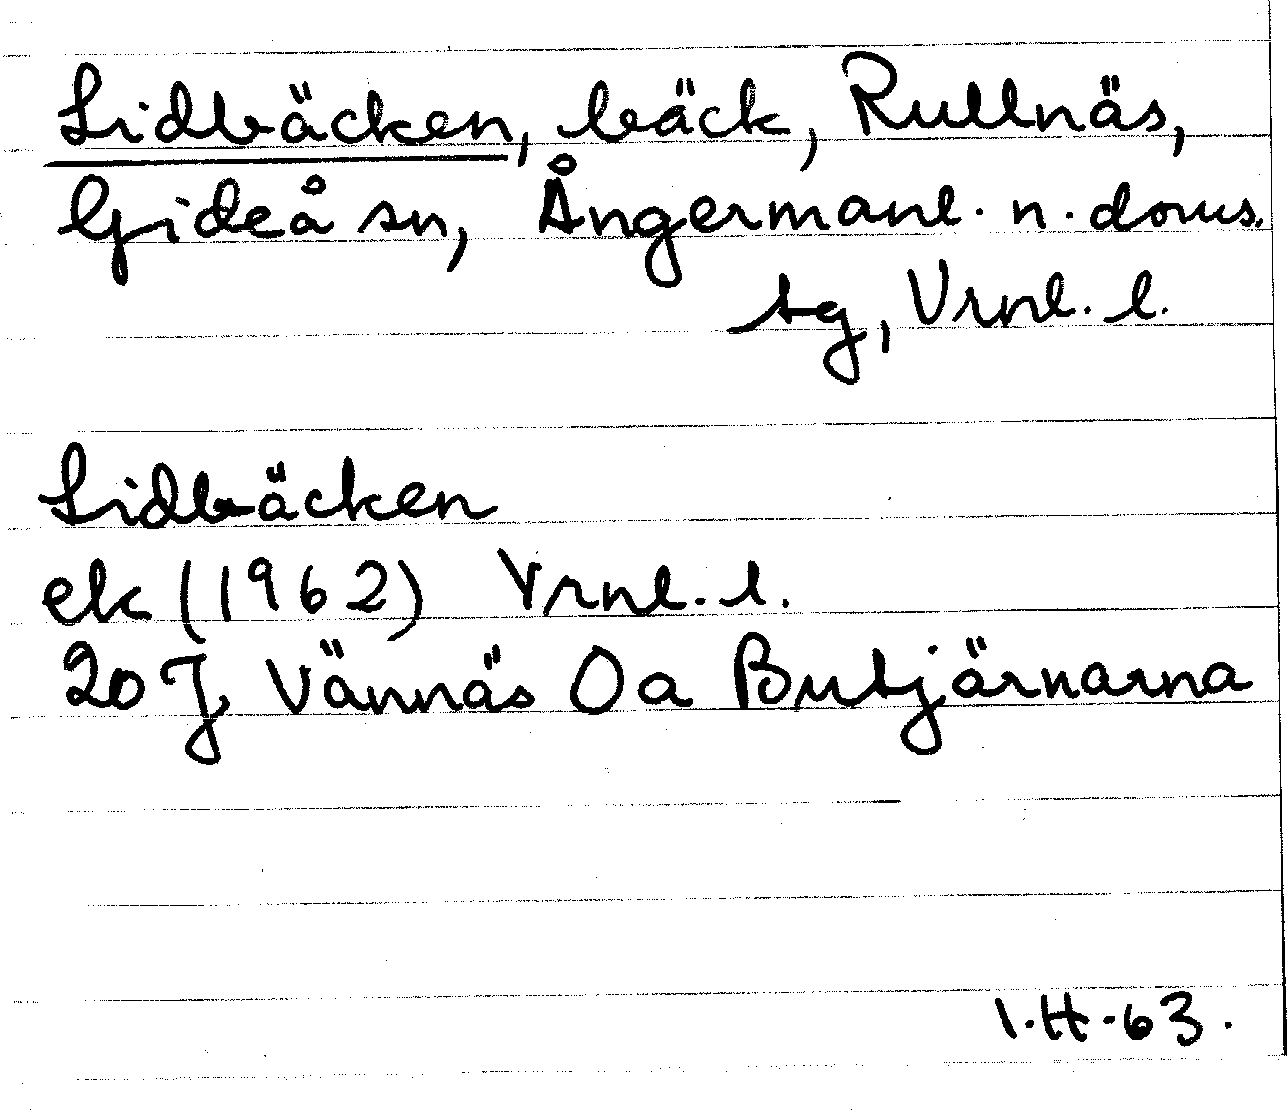 Lidbäcken, bäck, Rullnäs,
Gideå sn, Ångermanl. n. doms.
tg, Vrnl. l.
Lidbäcken
ek (1962) Vrnl. l.
20 J Vännäs 0 a Butjärnarna
I.H.63.